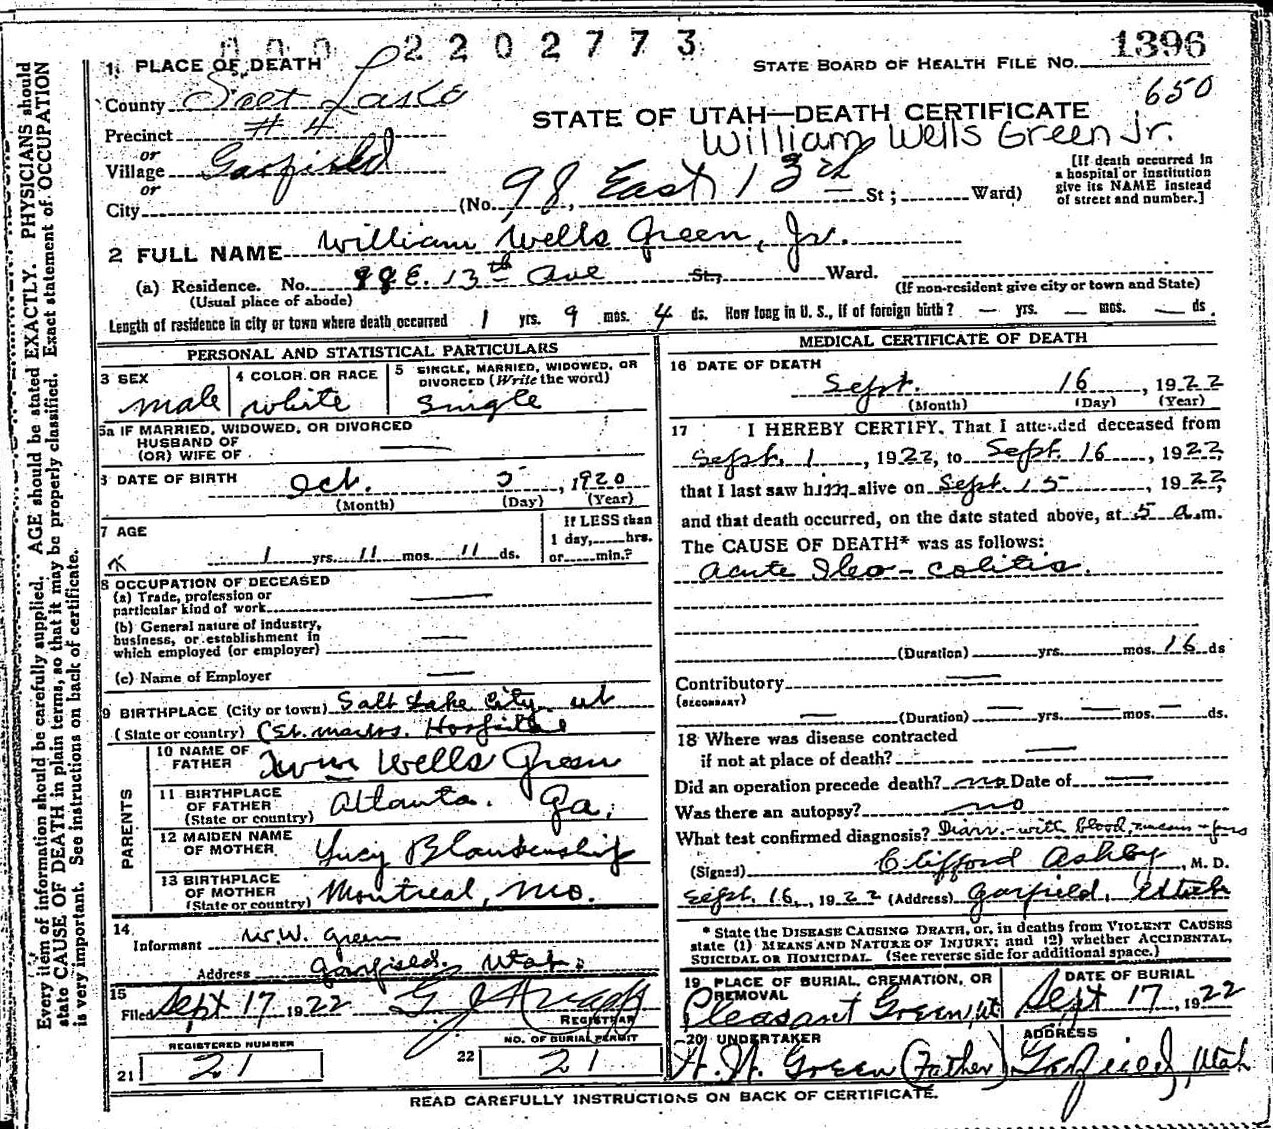 000 2202773
1396
1 PLACE OF DEATH
STATE BOARD OF HEALTH FILE NO.
County Salt Lake
650
STATE OF UTAH—DEATH CERTIFICATE
Precinct #4
William Wells Green Jr.
or
Village Garfield
or
City (No. 98, East 13th St; Ward)
[If death occurred in a hospital or institution give its NAME instead of street and number.]
2 FULL NAME William Wells Green, Jr.
(a) Residence. No. 98 E. 13th Ave St., Ward.
(Usual place of abode)
(If non-resident give city or town and State)
Length of residence in city or town where death occurred 1 yrs. 9 mos. 4 ds. How long in U. S., if of foreign birth? — yrs. — mos. — ds.
PERSONAL AND STATISTICAL PARTICULARS
3 SEX male
4 COLOR OR RACE white
5 SINGLE, MARRIED, WIDOWED, OR DIVORCED (Write the word) Single
5a IF MARRIED, WIDOWED, OR DIVORCED
HUSBAND OF
(OR) WIFE OF —
6 DATE OF BIRTH Oct. 5, 1920
(Month) (Day) (Year)
7 AGE
1 yrs. 11 mos. 11 ds.
If LESS than 1 day, hrs. or min.?
8 OCCUPATION OF DECEASED
(a) Trade, profession or particular kind of work —
(b) General nature of industry, business, or establishment in which employed (or employer) —
(c) Name of Employer —
9 BIRTHPLACE (City or town) Salt Lake City ut
(State or country) (St. Marks. Hospital
PARENTS
10 NAME OF FATHER Wm Wells Green
11 BIRTHPLACE OF FATHER (State or country) Atlanta. Ga.
12 MAIDEN NAME OF MOTHER Lucy Blankenship
13 BIRTHPLACE OF MOTHER (State or country) Montreal, Mo.
14
Informant W.W. Green
Address Garfield, Utah.
15
Filed Sept 17, 1922
REGISTRAR
REGISTERED NUMBER
NO. OF BURIAL PERMIT
21 21
22 21
MEDICAL CERTIFICATE OF DEATH
16 DATE OF DEATH
Sept. 16, 1922
(Month) (Day) (Year)
17 I HEREBY CERTIFY, That I attended deceased from
Sept. 1, 1922, to Sept. 16, 1922,
that I last saw him alive on Sept. 15, 1922,
and that death occurred, on the date stated above, at 5 a.m.
The CAUSE OF DEATH* was as follows:
Acute Ileo-colitis.
(Duration) yrs. mos. 16 ds
Contributory —
(SECONDARY)
— (Duration) — yrs. — mos. — ds.
18 Where was disease contracted
if not at place of death? —
Did an operation precede death? no Date of —
Was there an autopsy? no
What test confirmed diagnosis? Diarr.-with blood, mucus + pus
(Signed) Clifford Ashby, M. D.
Sept. 16, 1922 (Address) Garfield, Utah
* State the DISEASE CAUSING DEATH, or, in deaths from VIOLENT CAUSES
state (1) MEANS AND NATURE OF INJURY; and (2) whether ACCIDENTAL,
SUICIDAL OR HOMICIDAL. (See reverse side for additional space.)
19 PLACE OF BURIAL, CREMATION, OR REMOVAL
Pleasant Green, Ut
DATE OF BURIAL
Sept 17, 1922
20 UNDERTAKER
W. W. Green (Father)
ADDRESS
Garfield, Utah
READ CAREFULLY INSTRUCTIONS ON BACK OF CERTIFICATE.
Every item of information should be carefully supplied. AGE should be stated EXACTLY. PHYSICIANS should
state CAUSE OF DEATH in plain terms, so that it may be properly classified. Exact statement of OCCUPATION
is very important. See instructions on back of certificate.